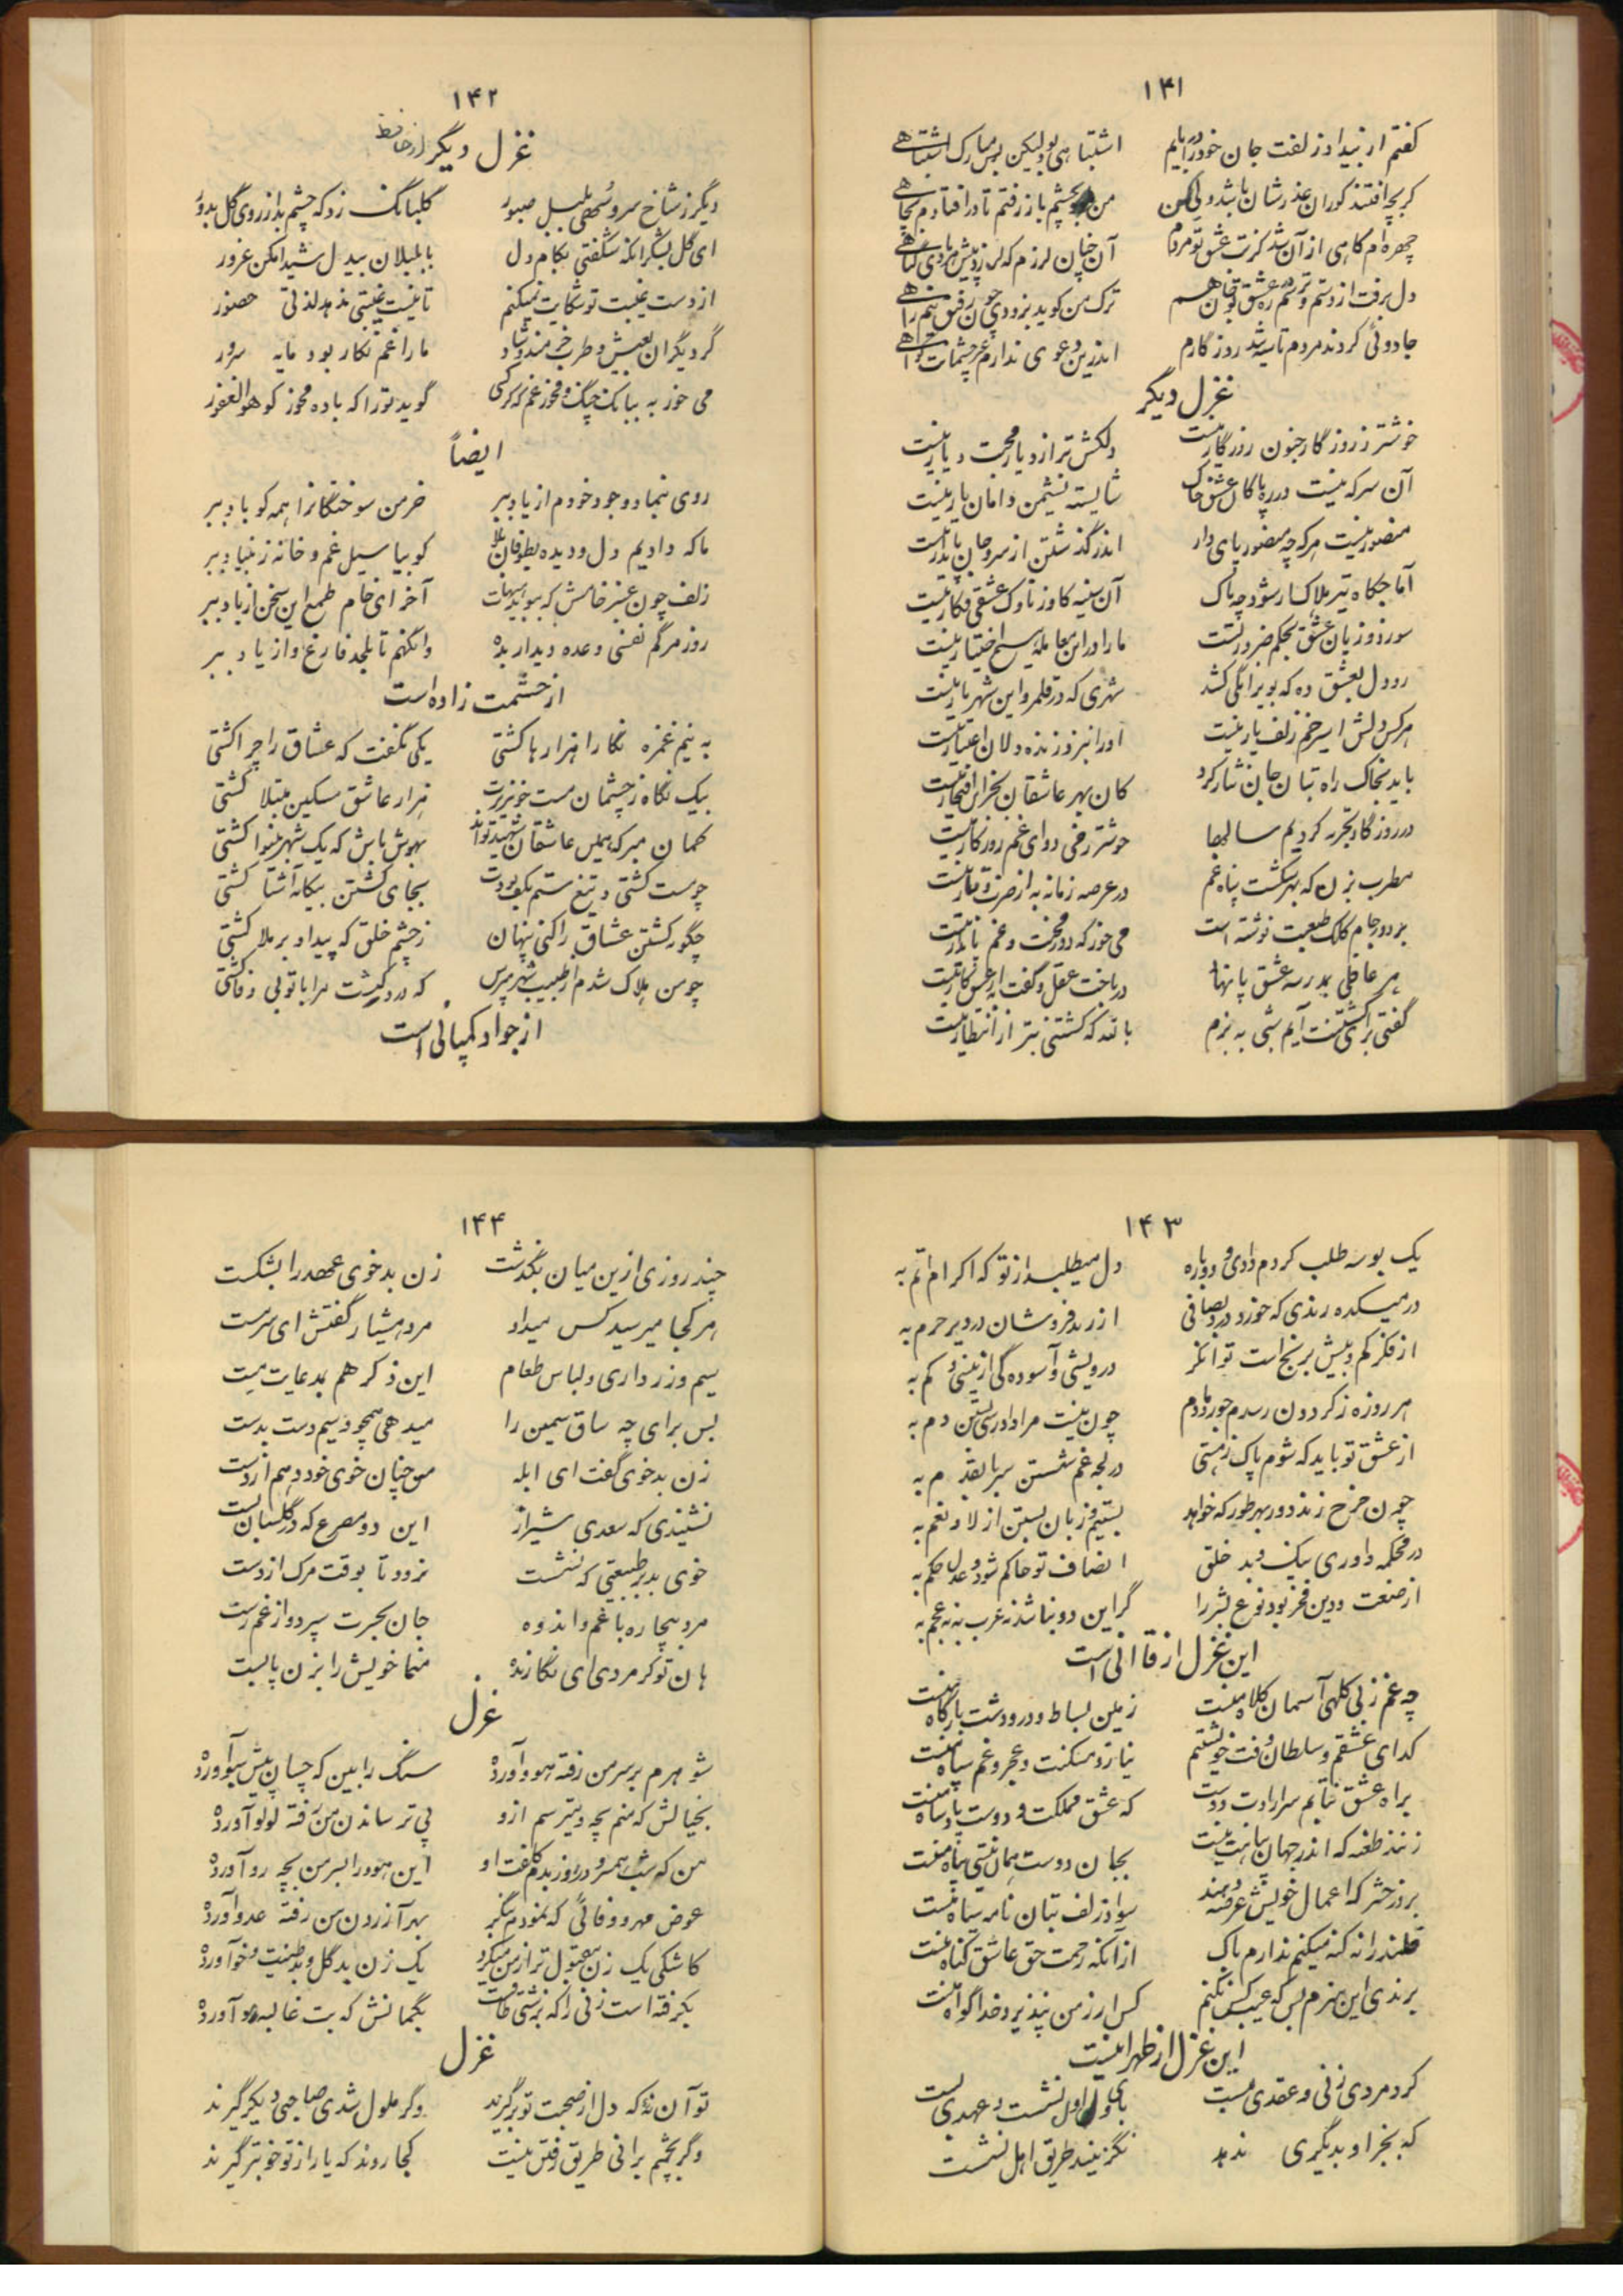 ۱۴۱
گفتم از بیداد زلفت جان خود را یابم اشتباهی بود لیکن بس مبارک اشتباهی
گر بچه افتند کوران عذرشان باشد ولیکن من بچشم باز رفتم تا در افتادم بچاهی
چهره ام کاهی از آن شد کزت عشق تو مردم آن چنان لرزم که لرزد پیش بادی گیاهی
دل برفت از دستم و ترسم ره عشق تو جان هم ترک من گوید بزودی چون رفیق نیم راهی
جادوئی کردند مردم تا سیه شد روزگارم اندرین دعوی ندارم غیر چشمانت گواهی
غزل دیگر
خوشتر ز روزگار جنون روزگار نیست دلکش تر از دیار محبت دیار نیست
آن سر که نیست در ره پاکان عشق خاک شایسته نشیمن دامان یار نیست
منصور نیست هر که چه منصور پای دار اندر گذشتن از سر و جان پایدار نیست
آماجگاه تیر هلاک ار شود چه باک آن سینه کاو ز ناوک عشقی فکار نیست
سود و زیان عشق بحکم ضرورتست ما را در این معامله هیچ اختیار نیست
رو دل بعشق ده که بویرانگی کشد شهری که در قلمرو این شهریار نیست
هر کس دلش اسیر خم زلف یار نیست او را بنزد زنده دلان اعتبار نیست
باید بخاک راه بتان جان نثار کرد کان بهر عاشقان بجز این افتخار نیست
در روزگار تجربه کردیم سالها خوشتر ز می دوای غم روزگار نیست
مطرب بزن که بهر شکست پناه غم در عرصه زمانه به از ضرب تار نیست
بر دور جام کلک طبیعت نوشته است می خور که دور محنت و غم پایدار نیست
هر عاقلی بمدرسه عشق پا نهاد درباخت عقل و گفت به از عشق کار نیست
گفتی برای کشتنت آیم شبی به بزم بالله که کشتنی بتر از انتظار نیست
۱۴۲
غزل دیگر از حافظ
دیگر ز شاخ سرو سهی بلبل صبور گلبانگ زد که چشم بد از روی گل بدور
ای گل بشکر آنکه شکفتی بکام دل با بلبلان بیدل شیدا مکن غرور
از دست غیبت تو شکایت نمیکنم تا نیست غیبتی ندهد لذتی حضور
گر دیگران بعیش و طرب خرمند و شاد ما را غم نگار بود مایه سرور
می خور به بانگ چنگ و مخور غم گر کسی گوید تو را که باده مخور گو هو الغفور
ایضاً
روی بنما و وجود خودم از یاد ببر خرمن سوختگانرا همه گو باد ببر
ما که دادیم دل و دیده بطوفان بلا گو بیا سیل غم و خانه ز بنیاد ببر
زلف چون عنبر خامش که ببوید هیهات آخر ای خام طمع این سخن از یاد ببر
روز مرگم نفسی وعده دیدار بده وانگهم تا بلحد فارغ و ازاد ببر
از حشمت زاده است
به نیم غمزه نگارا هزارها کشتی یکی نگفت که عشاق را چرا کشتی
بیک نگاه ز چشمان مست خونریزت هزار عاشق مسکین مبتلا کشتی
گمان مبر که همین عاشقان شهید تواند بهوش باش که یک شهر بینوا کشتی
چو مست گشتی و تیغ ستم بکف بودت بجای کشتن بیگانه آشنا کشتی
چگونه کشتن عشاق را کنی پنهان ز چشم خلق که پیدا و برملا کشتی
چو من هلاک شدم از طبیب شهر مپرس که درد کشت مرا یا تو بی وفا کشتی
از جواد کمپانی است
۱۴۳
یک بوسه طلب کردم دادی و دوباره دل میطلبد از تو که اکرام اتم به
در میکده رندی که خورد درد بصافی از زهد فروشان در دیر حرم به
از فکر کم و بیش برنج است توانگر درویشی و آسوده گی از بیشی و کم به
هر روزه ز گردون رسدم جور دمادم چون نیست مرا دادرسی بستن دم به
از عشق تو باید که شوم پاک ز هستی در لجه غم شستن سر تا بقدم به
چون چرخ زند دور بهر طور که خواهد بستیم زبان بستن از لا و نعم به
در محکمه داوری نیک و بد خلق انصاف تو حاکم شود و عدل حکم به
از صنعت و دین فخر بود نوع بشر را گر این دو نباشد نه عرب به نه عجم به
این غزل از قاآنی است
چه غم ز بی کلهی آسمان کلاه منست زمین بساط و در و دشت بارگاه منست
گدای عشقم و سلطان وقت خویشتنم نیاز و مسکنت و عجز و غم سپاه منست
براه عشق نتابم سر ارادت دوست که عشق مملکت و دوست پادشاه منست
زنند طعنه که اندر جهان پناهت نیست بجان دوست همان نیستی پناه منست
بروز حشر که اعمال خویش عرضه دهند سواد زلف بتان نامه سیاه منست
قلندرانه گنه میکنم ندارم باک از آنکه رحمت حق عاشق گناه منست
برندی این هنرم بس که عیب کس نکنم کس ار ز من نپذیرد خدا گواه منست
این غزل از طهرانیست
کرد مردی زنی و عقدی بست با وی اول نشست و عهدی بست
که بجز او بدیگری ندهد نگزیند طریق اهل نشست
۱۴۴
چند روزی ازین میان بگذشت زن بدخوی عهد را بشکست
هر کجا میرسید کس میداد مرد هشیار گفتش ای سرمست
سیم و زر داری و لباس طعام این ذکر هم بمدعایت هست
پس برای چه ساق سیمین را میدهی همچو سیم دست بدست
زن بدخوی گفت ای ابله من چنان خوی خود دهم از دست
نشنیدی که سعدی شیراز این دو مصرع که در گلستان است
خوی بد در طبیعتی که نشست نرود تا بوقت مرک از دست
مرد بیچاره با غم و اندوه جان بحسرت سپرد و از غم رست
هان تو گر مردی ای نگارنده منما خویش را بزن پابست
غزل
شوهرم بر سر من رفته هوو آورده سنگ را بین که چسان پیش سبو آورده
بخیالش که منم بچه و میترسم ازو پی ترساندن من رفته لولو آورده
من که شب همسر و در روز بدم کلفت او این هوو را بسر من بچه رو آورده
عوض مهر و وفائی که نمودم بنگر بهر آزردن من رفته عدو آورده
کاشکی یک زن مقبول تر از من میکرد یک زن بدگل و بدطینت و خو آورده
بگرفته است زنی را که بزشتی طاقست بگمانش که بت غالیه مو آورده
غزل
تو آن نه که دل از صحبت تو برگیرند وگر ملول شدی صاحبی دیگر گیرند
وگر بخشم برانی طریق رفتن نیست کجا روند که یار از تو خوبتر گیرند